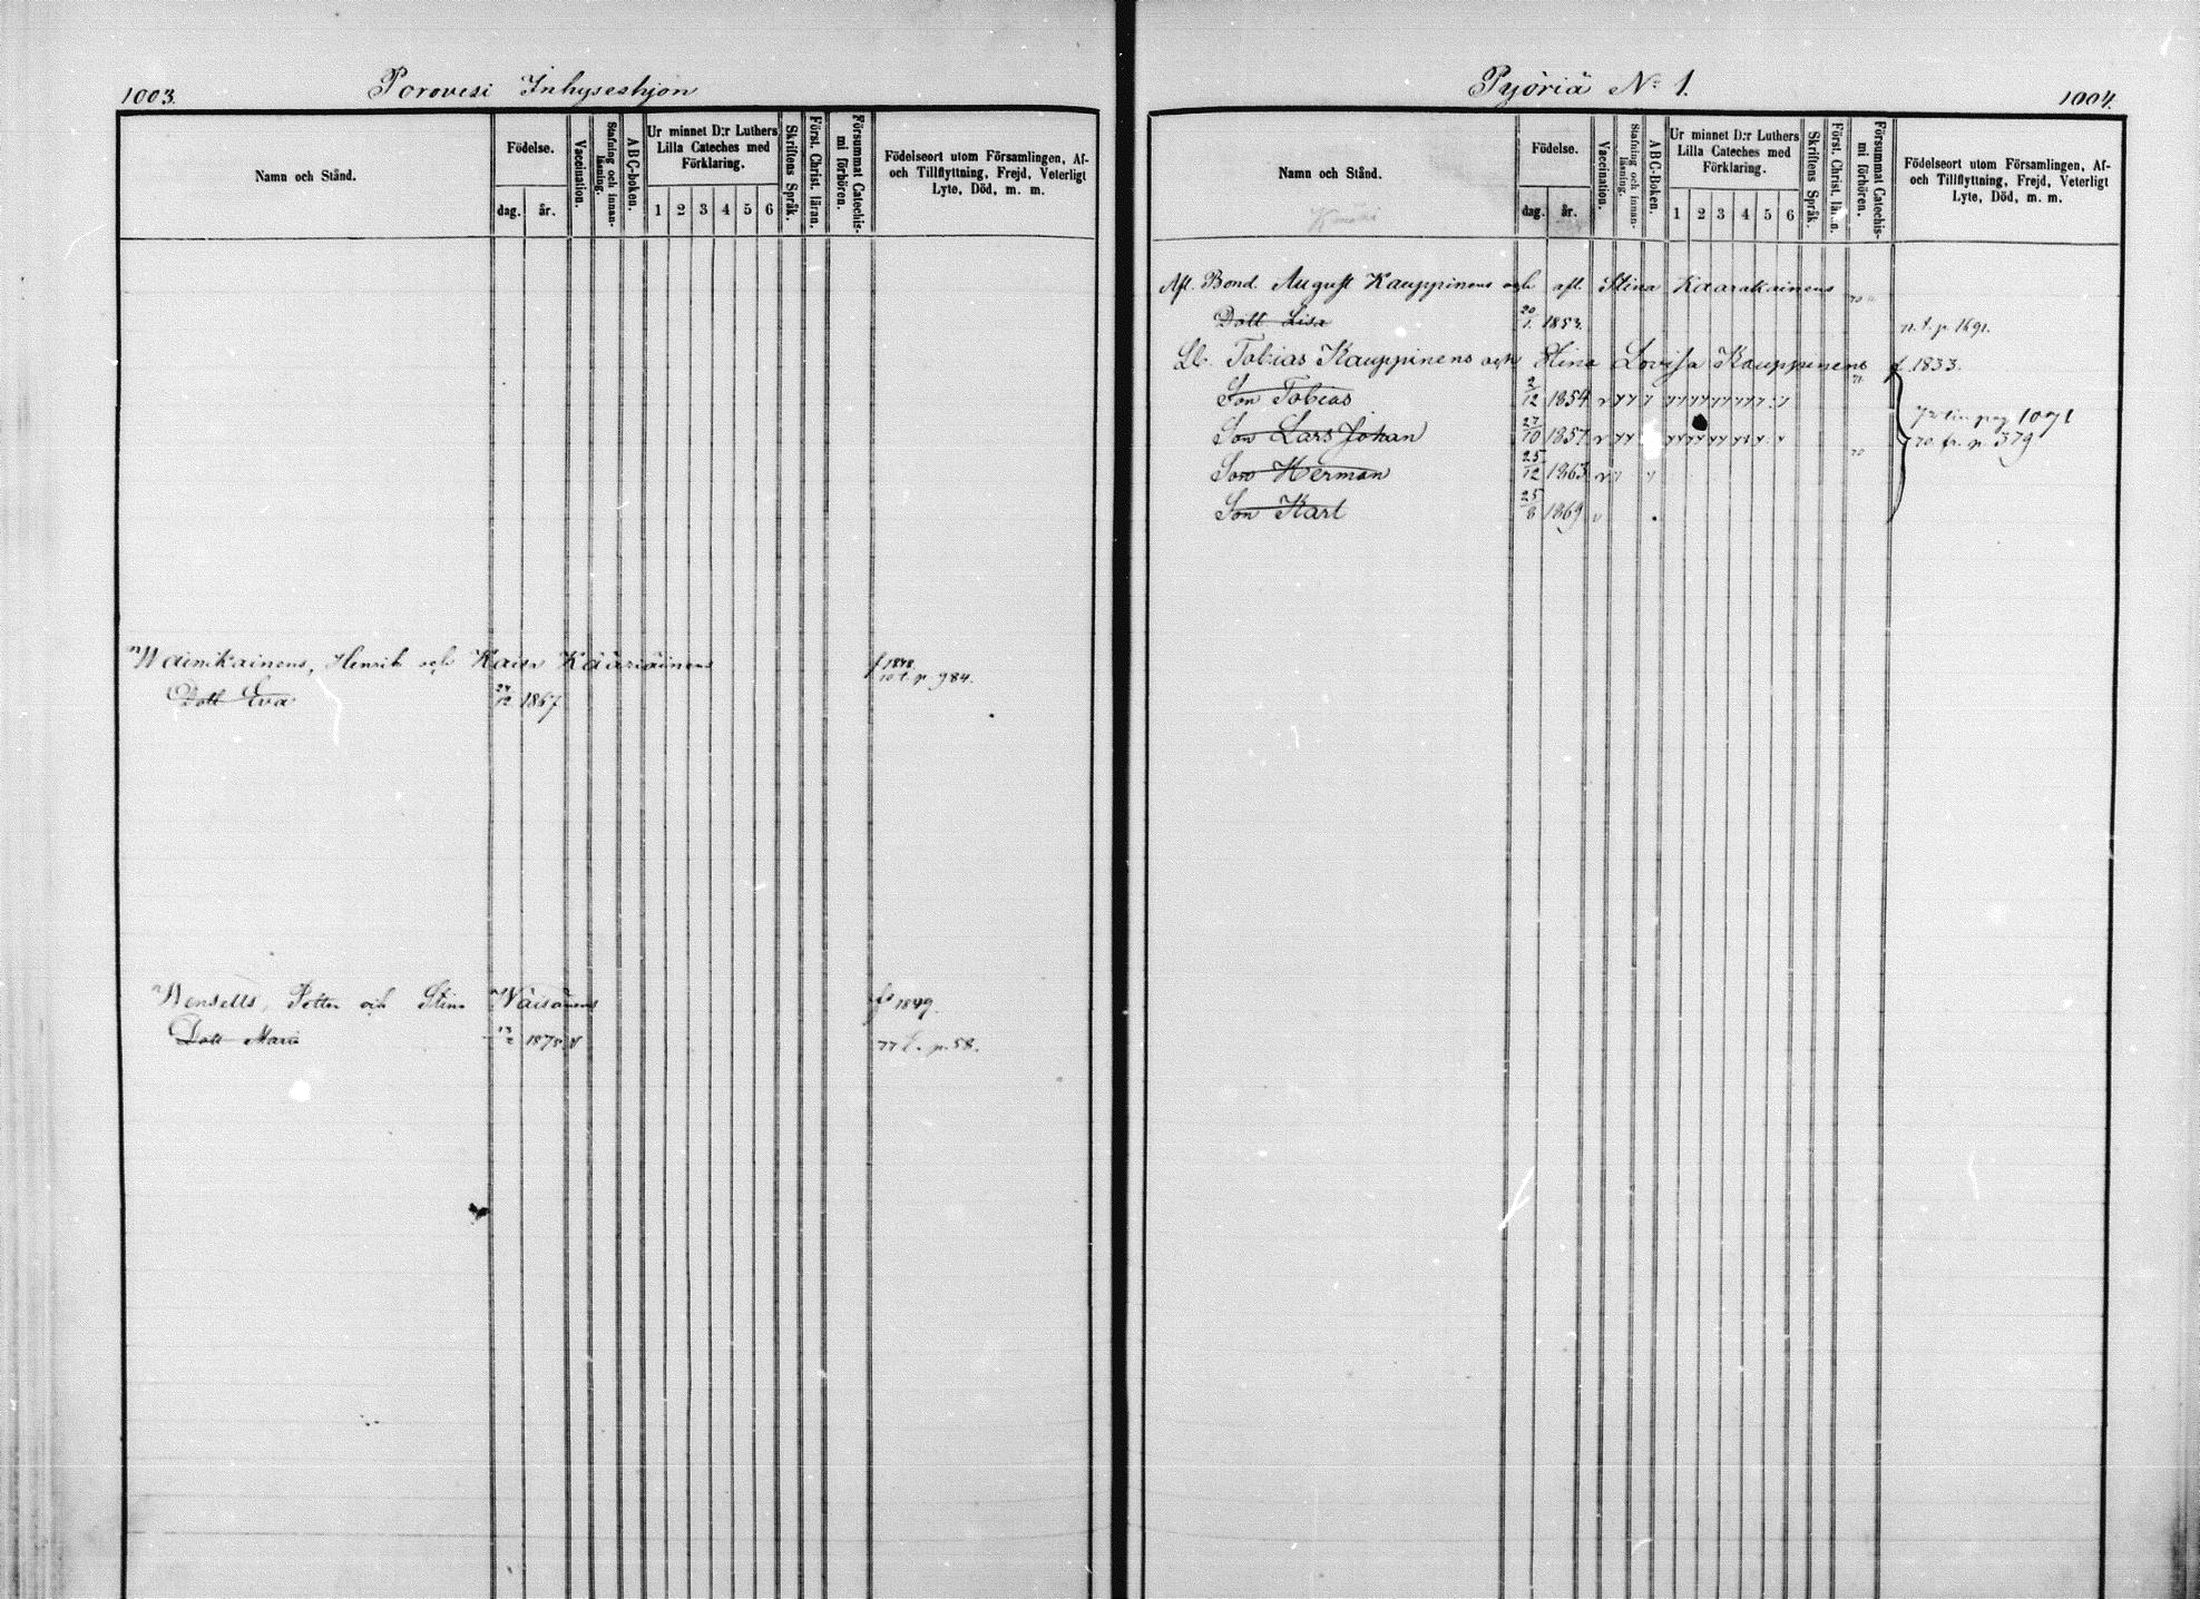 1003.
Porovesi Inhyseshjon
Namn och Stånd.
Födelse.
dag. år.
Vaccination.
Stafning och innan-läsning.
ABC-boken.
Ur minnet D:r Luthers
Lilla Cateches med
Förklaring.
1 2 3 4 5 6
Skriftens Språk.
Först. Christ. läran.
Försummat Catechis-
mi förhören.
Födelseort utom Församlingen, Af-
och Tillflyttning, Frejd, Veterligt
Lyte, Död, m. m.
Wainikainens, Henrik och Kaisa Kääriäinens f 1848.
t. p. 984.
Dott Eva 12 1867
Wensells, Petter och Stina Wäisänens 1849.
Dott Maria 13/2 1875 v 77 t. p. 58.
Pyöriä No 1.
1004.
Namn och Stånd.
Födelse.
dag. år.
Vaccination.
Stafning och innan-läsning.
ABC-Boken.
Ur minnet D:r Luthers
Lilla Cateches med
Förklaring.
1 2 3 4 5 6
Skriftens Språk.
Först. Christ. läran.
Försummat Catechis-
mi förhören.
Födelseort utom Församlingen, Af-
och Tillflyttning, Frejd, Veterligt
Lyte, Död, m. m.
Afl. Bond. August Kauppinens och afl. Stina Kaarakainens
Dott Lisa 20/1 1853. n. t. p. 1691.
Lb. Tobias Kauppinens och Stina Lovisa Kauppinens f 1833.
Son Tobias 2/12 1854 pag 1071
Son Lars Johan 27/10 1857 70 fr. p. 379
Son Herman 25/12 1863
Son Karl 25/8 1869